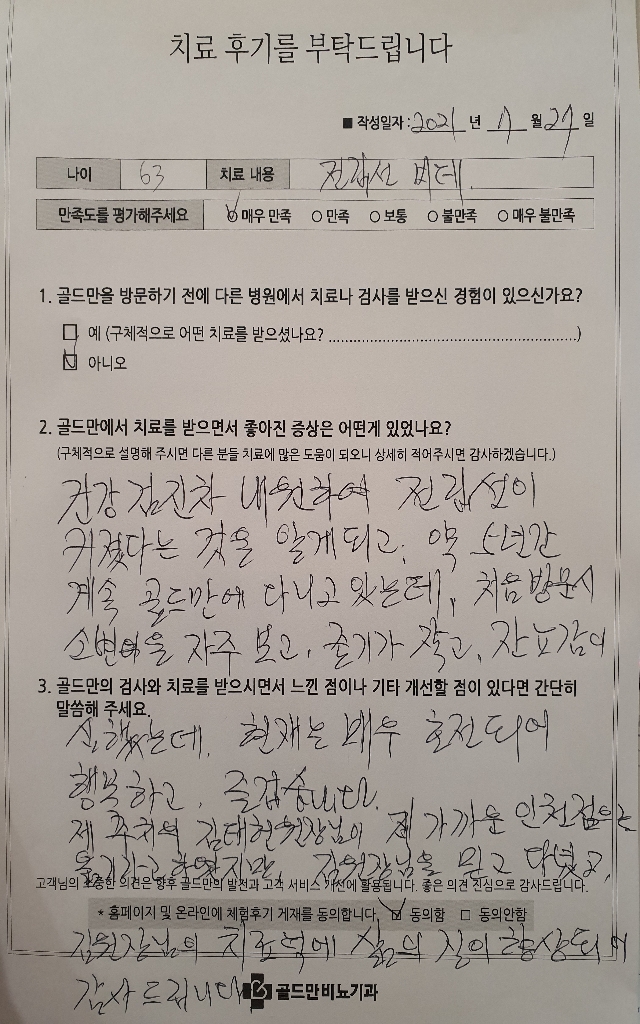 치료 후기를 부탁드립니다
■ 작성일자: 2021 년 7 월 27 일
나이 63 치료 내용 전립선 비대
만족도를 평가해주세요 ☑ 매우 만족 ○ 만족 ○ 보통 ○ 불만족 ○ 매우 불만족
1. 골드만을 방문하기 전에 다른 병원에서 치료나 검사를 받으신 경험이 있으신가요?
□ 예 (구체적으로 어떤 치료를 받으셨나요? ........................................................)
☑ 아니오
2. 골드만에서 치료를 받으면서 좋아진 증상은 어떤게 있었나요?
(구체적으로 설명해 주시면 다른 분들 치료에 많은 도움이 되오니 상세히 적어주시면 감사하겠습니다.)
건강 검진차 내원하여 전립선이
커졌다는 것을 알게되고, 약 5년간
계속 골드만에 다니고 있는데, 처음 방문시
소변을 자주 보고, 줄기가 작고, 잔뇨감이
3. 골드만의 검사와 치료를 받으시면서 느낀 점이나 기타 개선할 점이 있다면 간단히
말씀해 주세요.
심했는데, 현재는 매우 호전되어
행복하고, 즐겁습니다.
제 주치의 김태헌원장님이 가까운 인천점으로
옮기라고 하였지만, 김원장님을 믿고
고객님의 소중한 의견은 향후 골드만의 발전과 고객 서비스 개선에 활용됩니다. 좋은 의견 진심으로 감사드립니다.
* 홈페이지 및 온라인에 체험후기 게재를 동의합니다. ☑ 동의함 □ 동의안함
김원장님의 치료덕에 삶의 질이 향상되어
감사드립니다
골드만비뇨기과